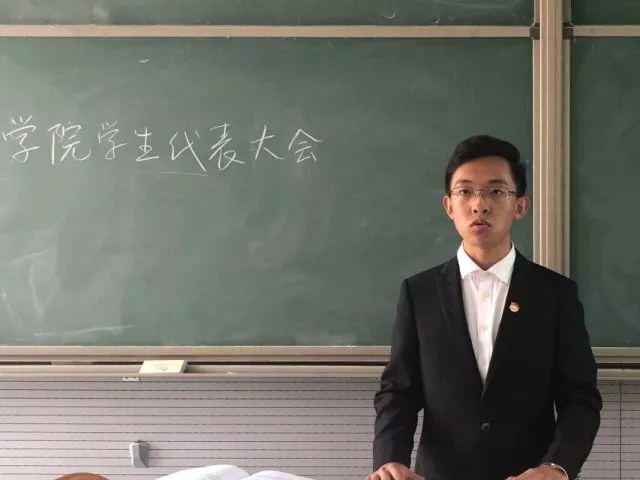 学院学生代表大会